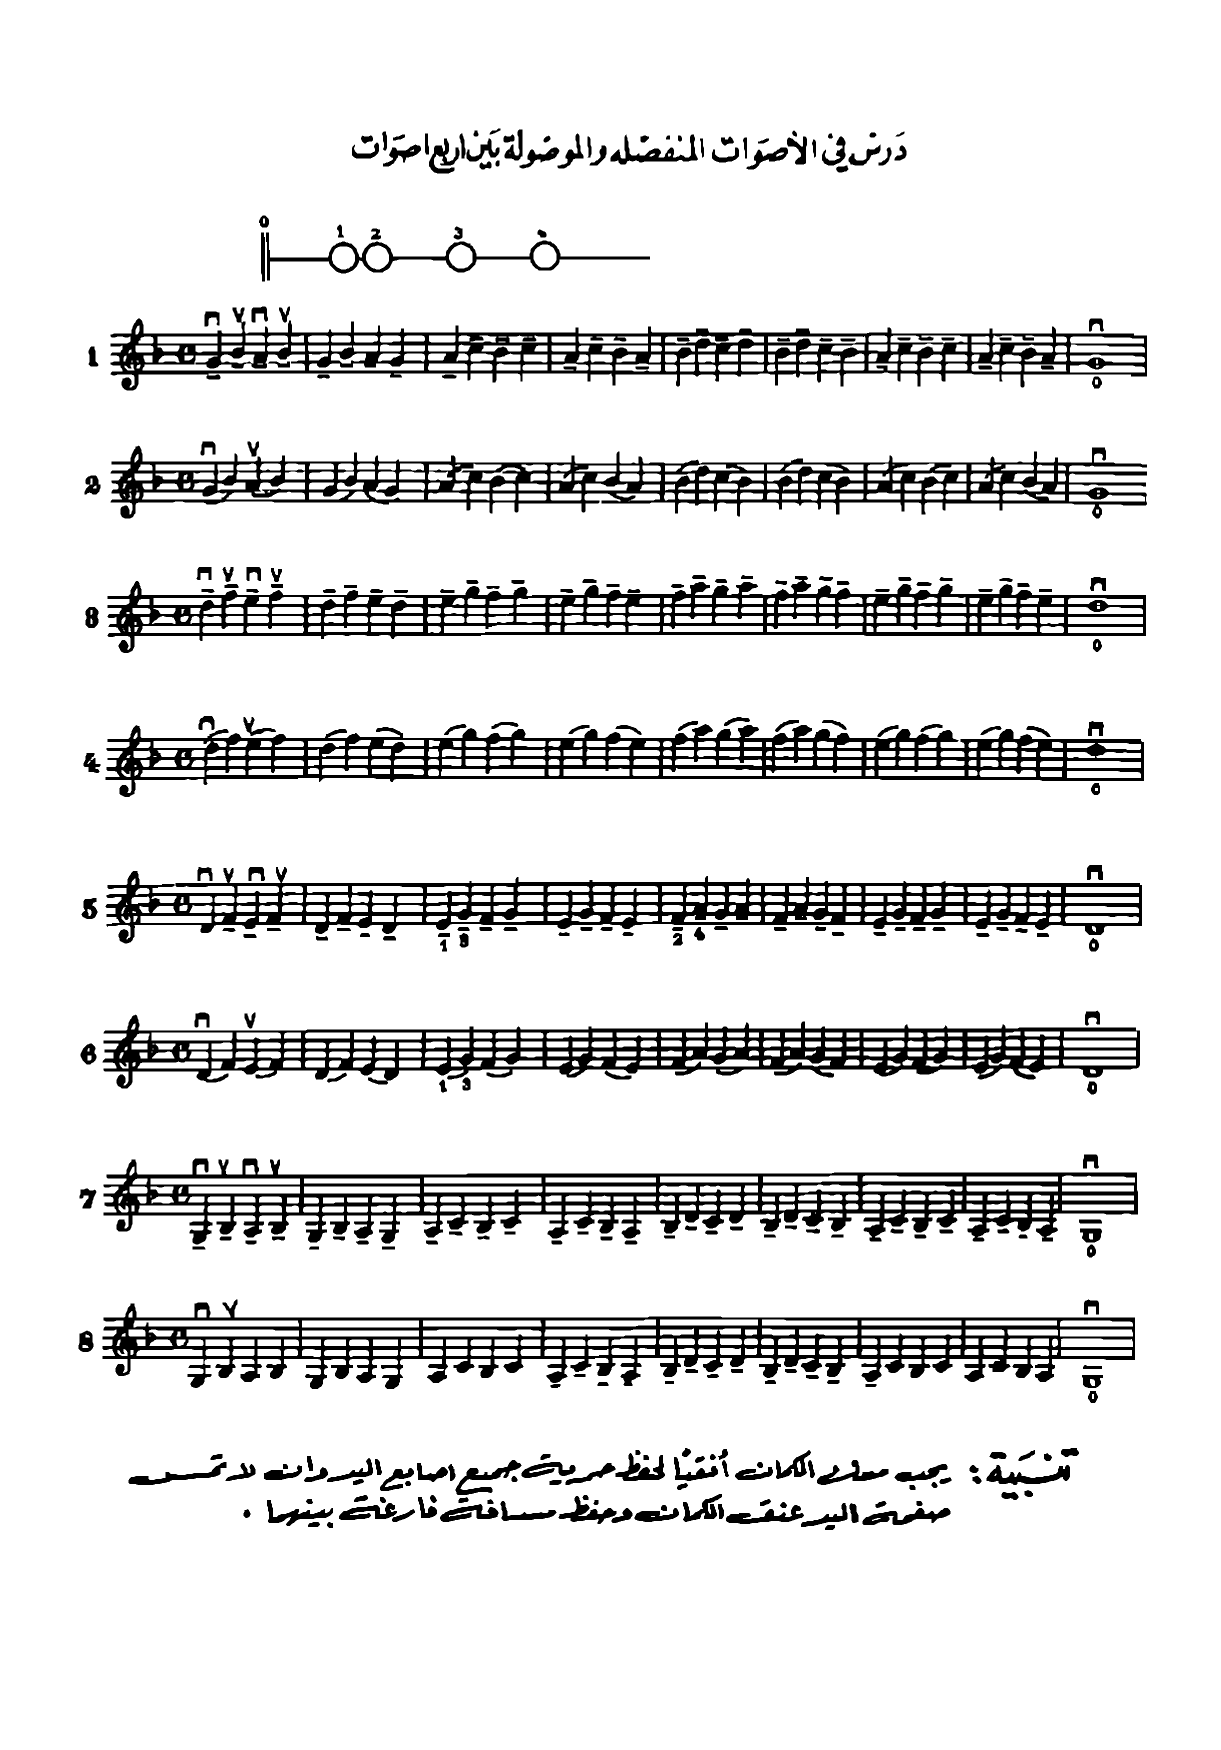 دَرسْ في الأصوَات المنفصّله والموصُولة بَين اربع اصوَات
0 1 2 3
1
0
2
0
3
0
4
0
5
1 3 2 4 0
6
1 3 0
7
0
8
0
تنبيه : يجب مسك الكمان أفقيًا لحفظ حرية جميع اصابع اليد وان لا تمس
صفحة اليد عنق الكمان وحفظ مسافة فارغة بينهما .